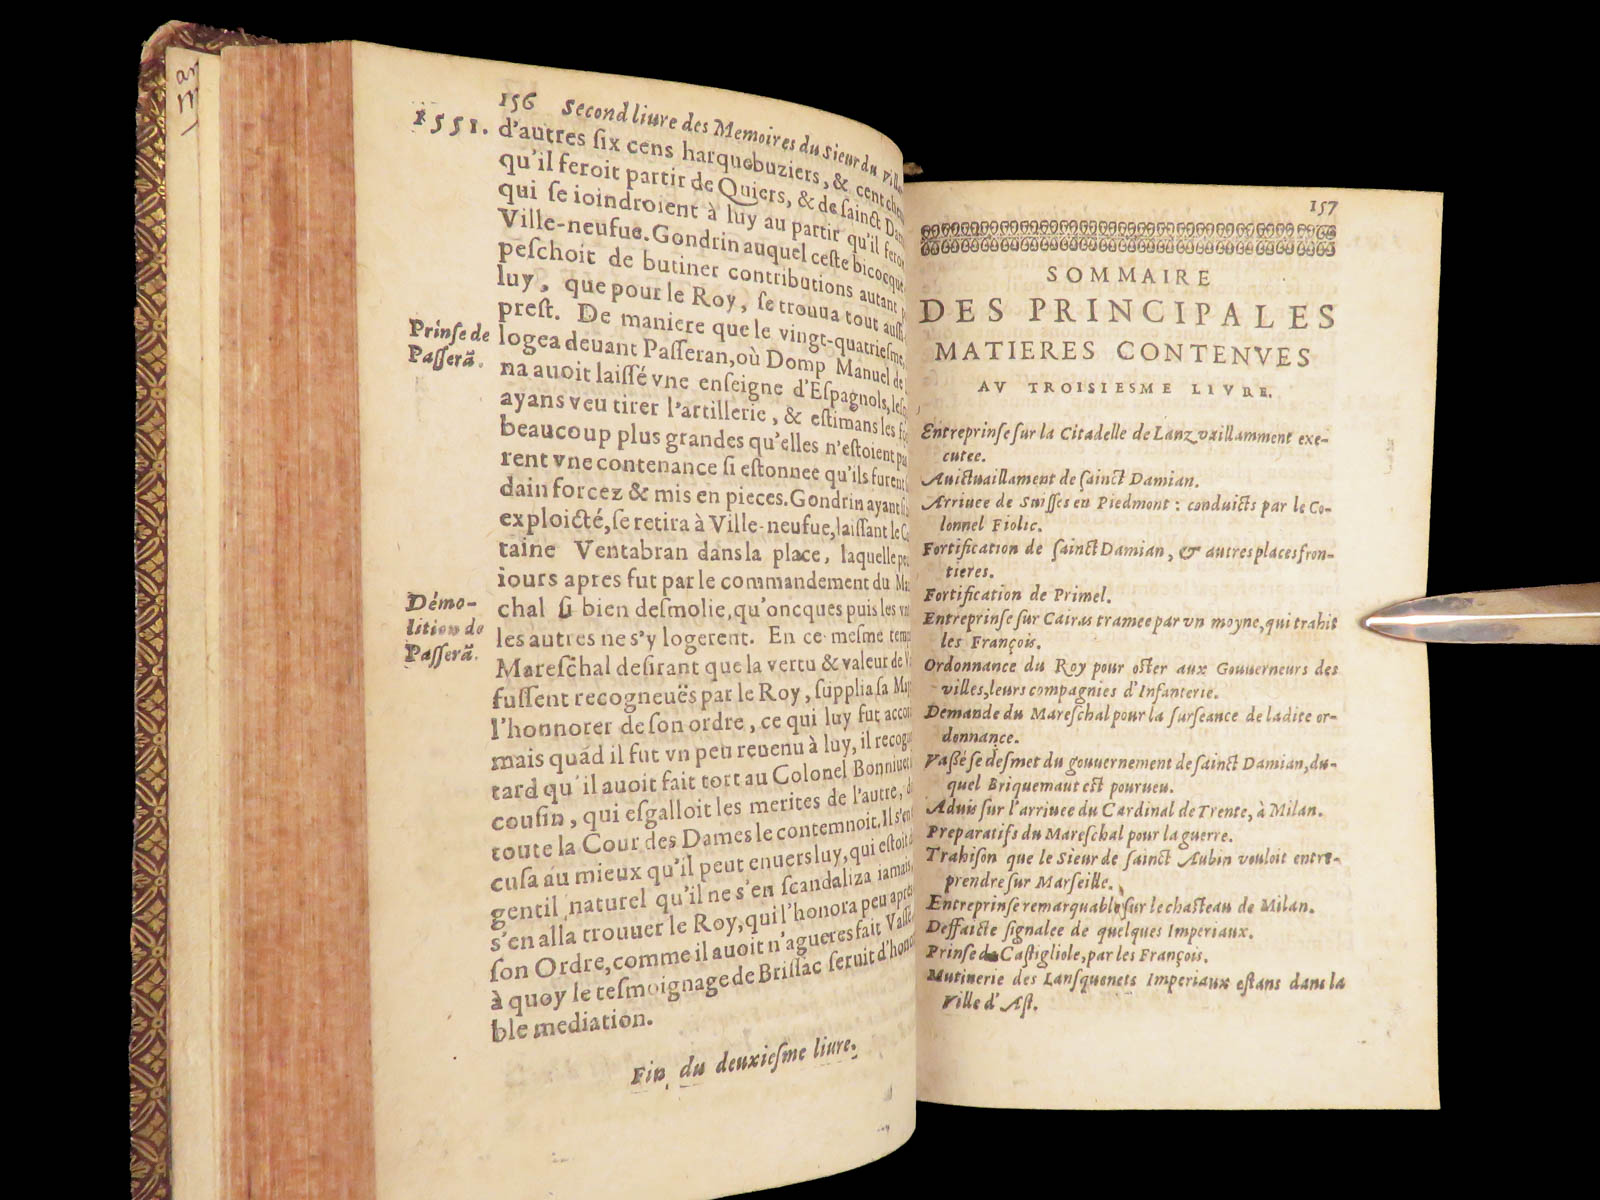 156 Second liure des Memoires du Sieur du
1551.
d'autres ſix cens harquebuziers, & cent
qu'il feroit partir de Quiers, & de ſainct
qui ſe ioindroient à luy au partir qu'il
Ville-neufue. Gondrin auquel ceſte bicocque
peſchoit de butiner contributions autant
luy, que pour le Roy, ſe trouua tout
preſt. De maniere que le vingt-quatrieſme,
Prinſe de
Paſſerã.
logea deuant Paſſeran, où Domp Manuel de
na auoit laiſſé vne enſeigne d'Eſpagnols,
ayans veu tirer l'artillerie, & eſtimans les
beaucoup plus grandes qu'elles n'eſtoient
rent vne contenance ſi eſtonnee qu'ils furent
dain forcez & mis en pieces. Gondrin ayant
exploicté, ſe retira à Ville-neufue, laiſſant le
taine Ventabran dans la place, laquelle
iours apres fut par le commandement du
Démo-
lition de
Paſſerã.
chal ſi bien deſmolie, qu'oncques puis les
les autres ne s'y logerent. En ce meſme
Mareſchal deſirant que la vertu & valeur de
fuſſent recogneuës par le Roy, ſupplia ſa
l'honnorer de ſon ordre, ce qui luy fut
mais quãd il fut vn peu reuenu à luy, il
tard qu'il auoit fait tort au Colonel
couſin, qui eſgalloit les merites de l'autre,
toute la Cour des Dames le contemnoit. Il
cuſa au mieux qu'il peut enuers luy, qui eſtoit
gentil naturel qu'il ne s'en ſcandaliza iamais,
s'en alla trouuer le Roy, qui l'honora peu
ſon Ordre, comme il auoit n'agueres fait
à quoy le teſmoignage de Briſſac ſeruit
ble mediation.
Fin du deuxieſme liure.
157
SOMMAIRE
DES PRINCIPALES
MATIERES CONTENVES
AV TROISIESME LIVRE.
Entreprinſe ſur la Citadelle de Lanz vaillamment exe-
cutee.
Auictuaillament de ſainct Damian.
Arriuee de Suiſſes en Piedmont : conduicts par le Co-
lonnel Fiolic.
Fortification de ſainct Damian, & autres places fron-
tieres.
Fortification de Primel.
Entreprinſe ſur Cairas tramee par vn moyne, qui trahit
les François.
Ordonnance du Roy pour oſter aux Gouuerneurs des
villes, leurs compagnies d'Infanterie.
Demande du Mareſchal pour la ſurſeance de ladite or-
donnance.
Vaſſé ſe deſmet du gouuernement de ſainct Damian, du-
quel Briquemaut eſt pourueu.
Aduis ſur l'arriuee du Cardinal de Trente, à Milan.
Preparatifs du Mareſchal pour la guerre.
Trahiſon que le Sieur de ſainct Aubin vouloit entre-
prendre ſur Marſeille.
Entreprinſe remarquable ſur le chaſteau de Milan.
Deffaicte ſignalee de quelques Imperiaux.
Prinſe de Caſtigliole, par les François.
Mutinerie des Lanſquenets Imperiaux eſtans dans la
Ville d'Aſt.